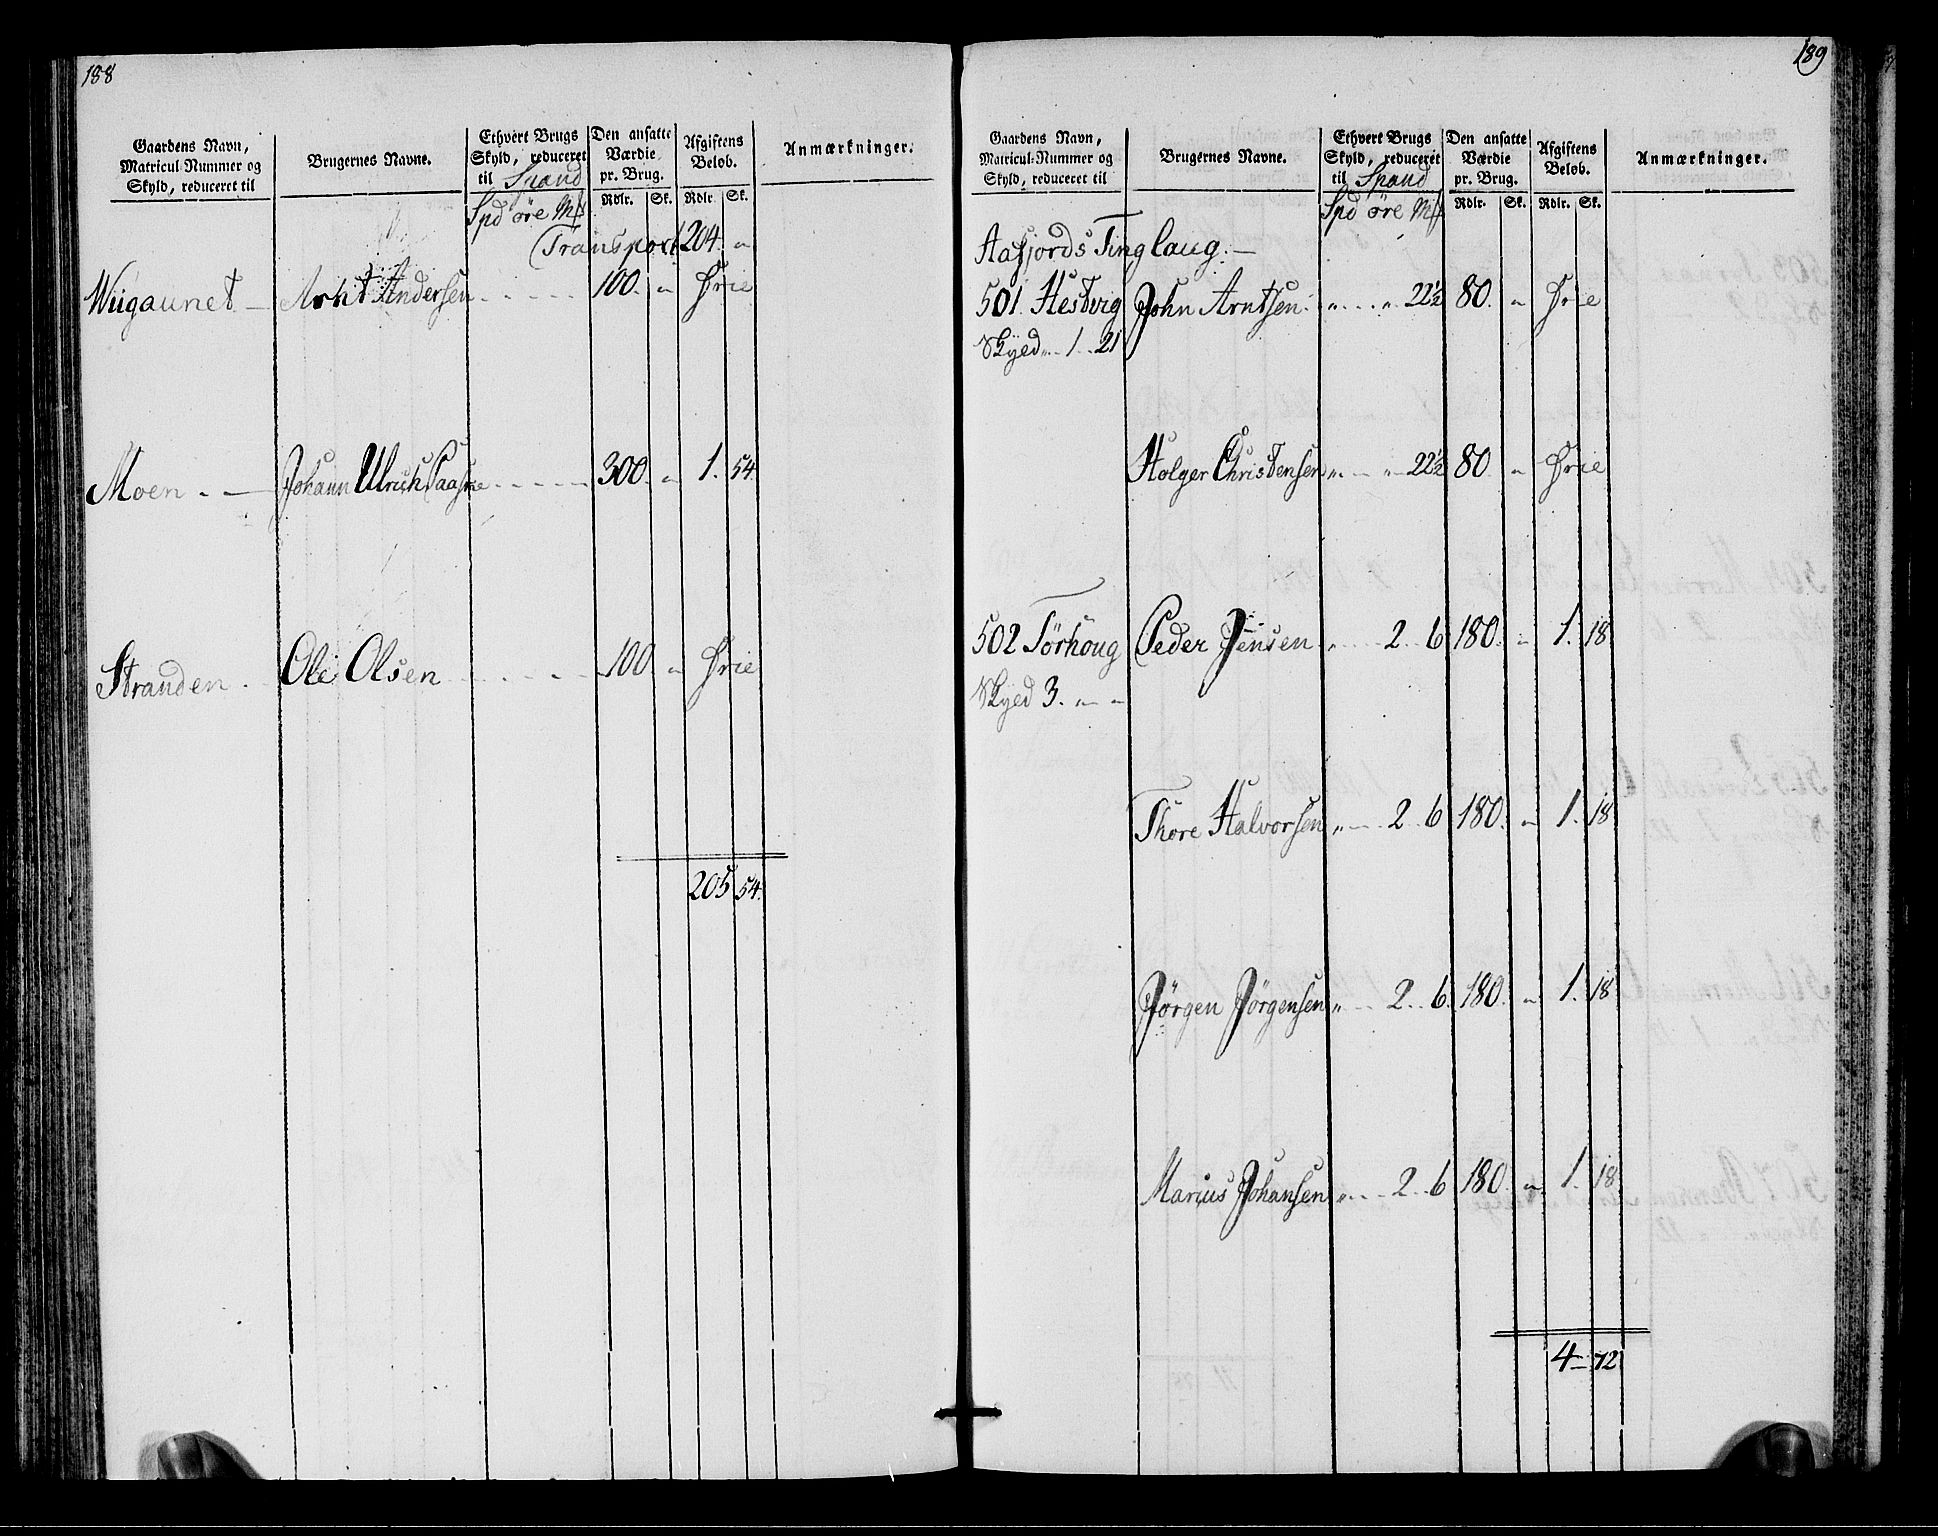 188
Gaardens Navn, Matricul-Nummer og Skyld, reduceret til
Brugernes Navne.
Ethvert Brugs Skyld, reduceret til Spand
Den ansatte Værdie pr. Brug.
Afgiftens Beløb.
Anmærkninger.
Rdlr. Sk. Rdlr. Sk.
Spd öre Mk
Transport 204. "
Wiigaunet — Arnt Andersen 100. " Frie
Moen . — Johann Ulrich 300. " 1. 54.
Stranden . Ole Olsen 100. " Frie
205 54.
189
Gaardens Navn, Matricul-Nummer og Skyld, reduceret til
Brugernes Navne.
Ethvert Brugs Skyld, reduceret til Spand
Den ansatte Værdie pr. Brug.
Afgiftens Beløb.
Anmærkninger.
Rdlr. Sk. Rdlr. Sk.
Spd öre Mk
Aafjords Tinglaug. —
501. Hestvig John Arntsen " " 22½ 80. " Frie
Skyed " 1 21
Holger Christensen " " 22½ 80. " Frie
502 Törhoug Peder Jensen " 2 6 180. " 1. 18
Skyed 3. " "
Thore Halvorsen " 2 6 180. " 1. 18
Jörgen Jörgensen " 2 6. 180. " 1. 18
Marius Johansen " 2 6 180. " 1. 18
4 — 72